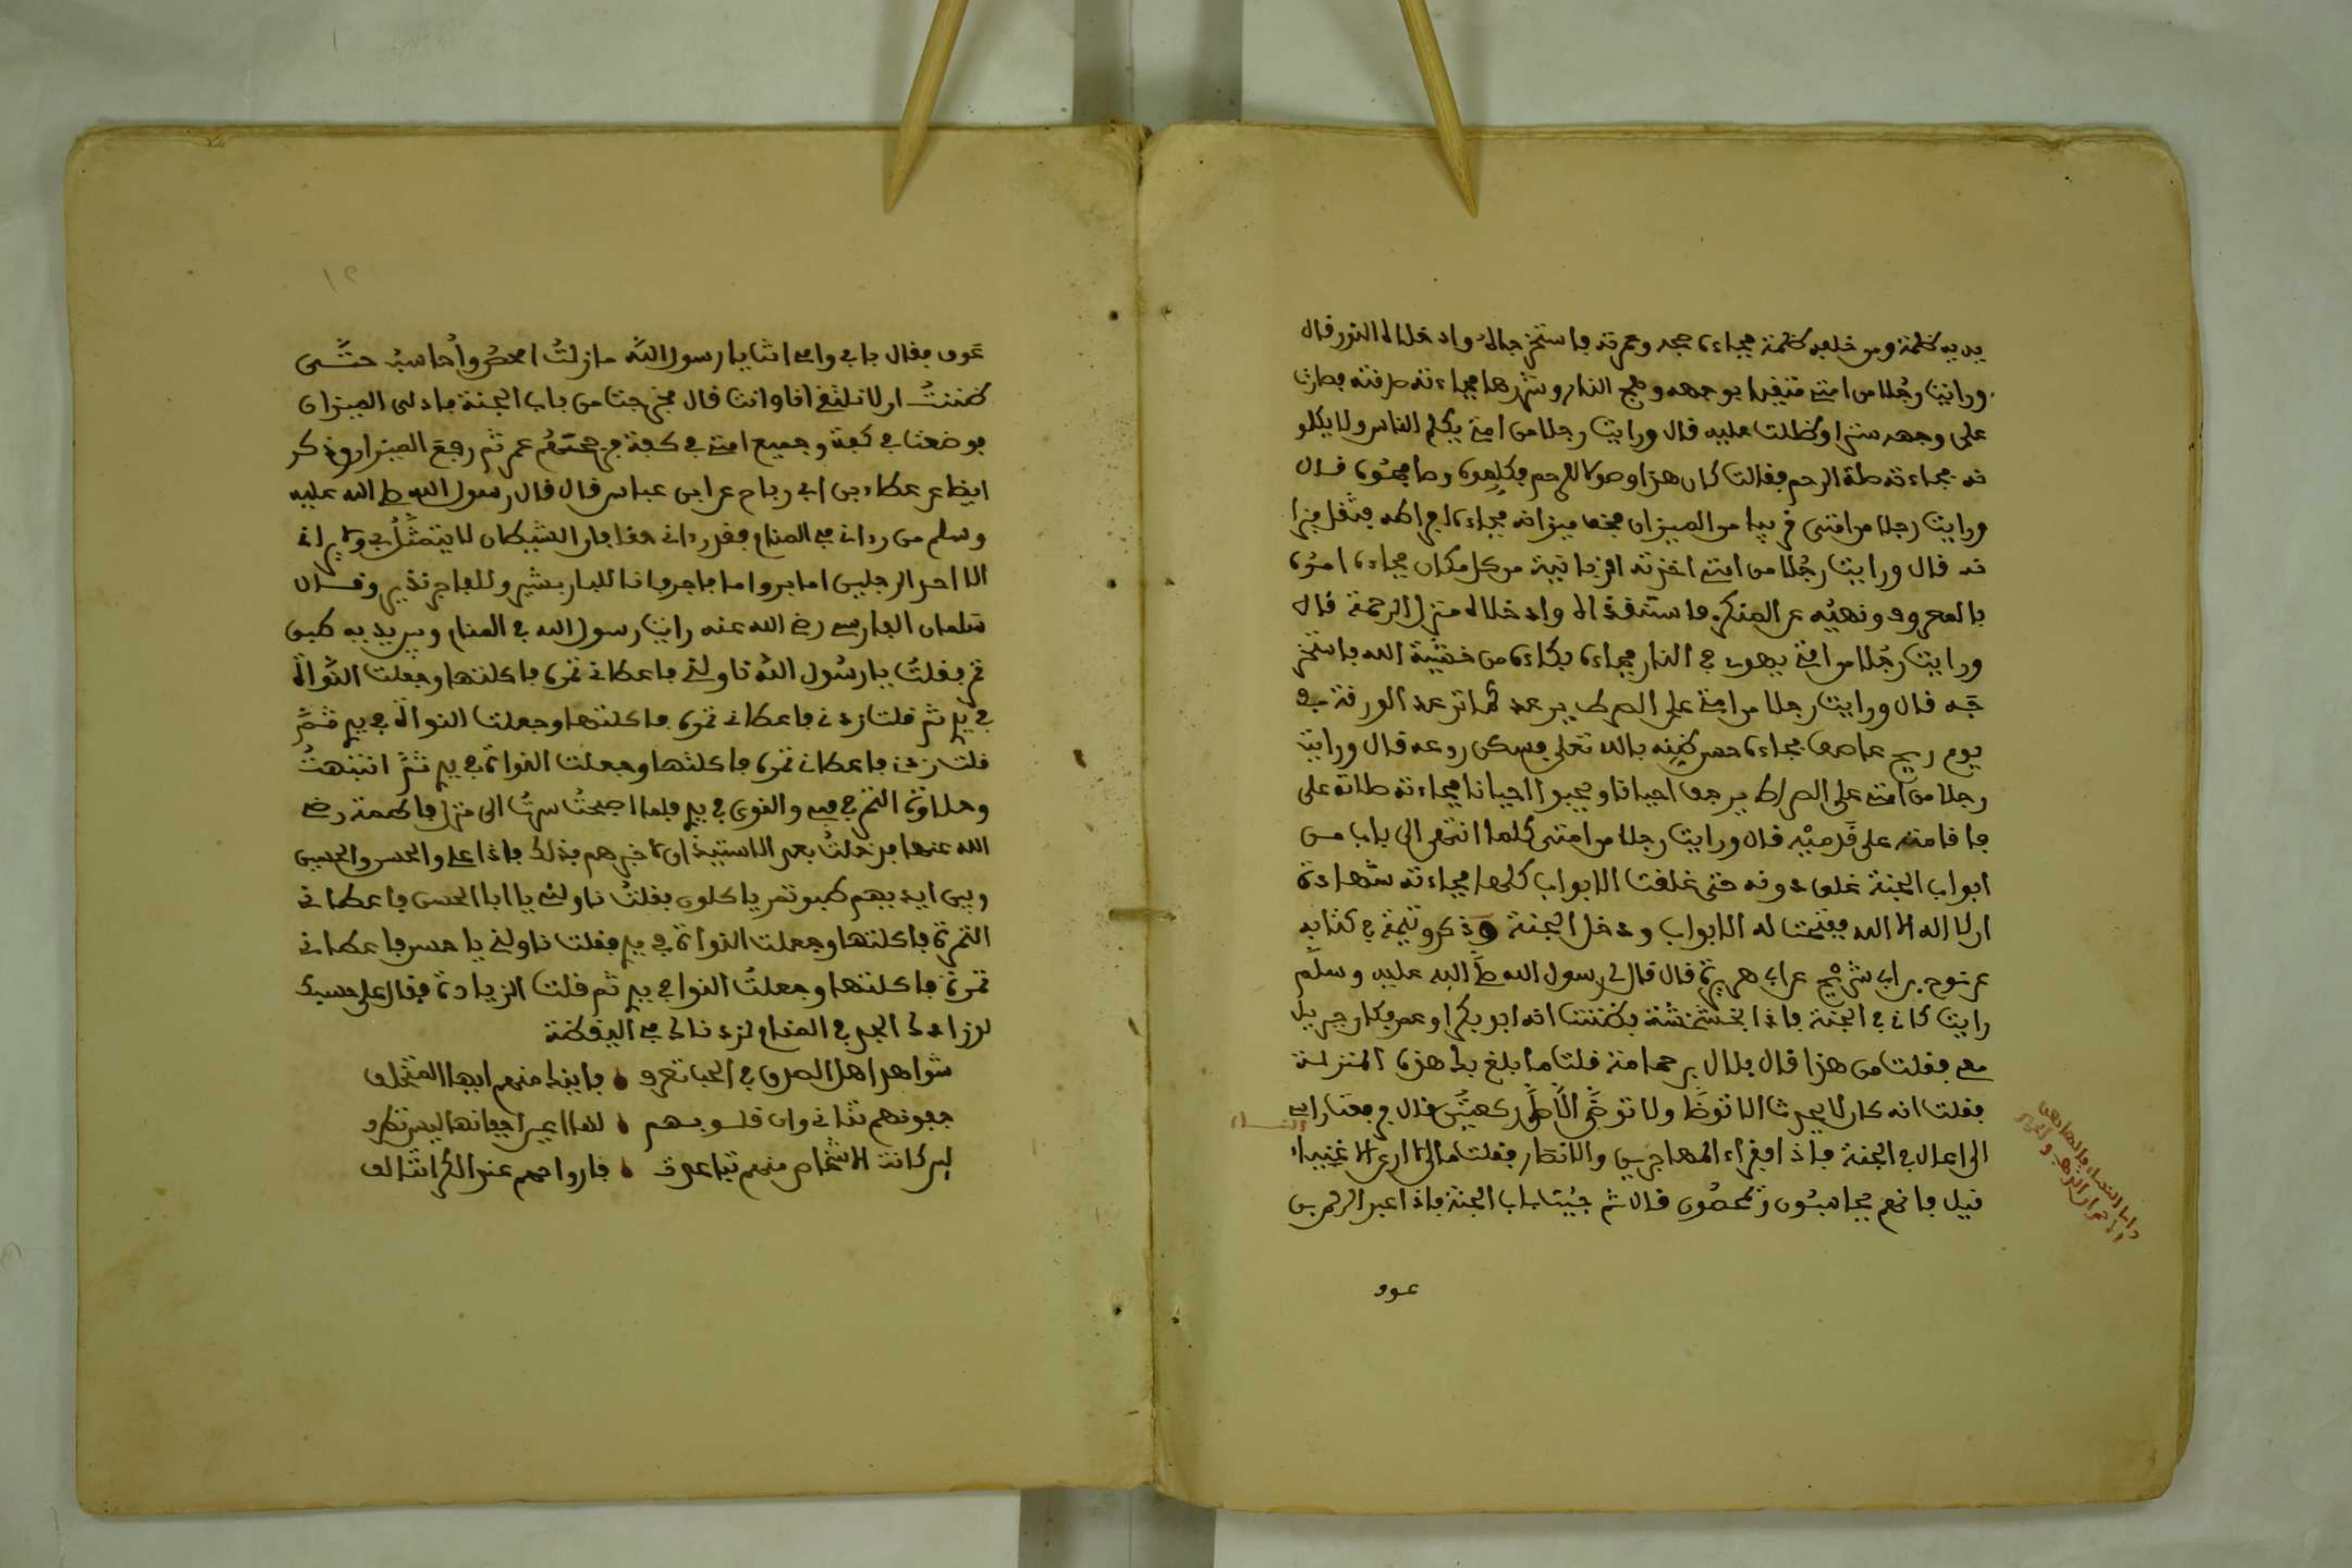 يديه ظلمة ومن خلفه ظلمة فجاءه حجه وعمرته فاستخرجاه وادخلاه النور قال
ورايت رجلا من امتي متقيدا بوجهه وهج النار وشررها فجاءته صدقته فصارت
على وجهه سترا وظللت عليه قال ورايت رجلا من امتي يكلم الناس ولا يكلمو
نه فجاءته صلة الرحم فقالت كان هذا وصولا للرحم فكلموه وصافحوه قال
ورايت رجلا من امتي قريبا من الميزان فخف ميزانه فجاءه افراطه فثقل ميزا
نه قال ورايت رجلا من امتي اخذته الزبانية من كل مكان فجاءه امره
بالمعروف ونهيه عن المنكر فاستنقذاه وادخلاه منزل الرحمة قال
ورايت رجلا من امتي يهوي في النار فجاءه بكاءه من خشية الله فاستخر
جه قال ورايت رجلا من امتي على الصراط يرعد كما ترعد الورقة في
يوم ريح عاصف فجاءه حسن ظنه بالله تعلى فسكن روعه قال ورايت
رجلا من امتي على الصراط يزحف احيانا ويحبوا احيانا فجاءته صلاته على
فاقامته على قدميه قال ورايت رجلا من امتي كلما انتهى الى باب من
ابواب الجنة غلق دونه حتى غلقت الابواب كلها فجاءته شهادة
ان لا اله الا الله ففتحت له الابواب ودخل الجنة وذكر وثيمة في كتابه
عن نوح بن ابي شريح عن ابي هريرة قال قال لي رسول الله صلى الله عليه وسلم
رايت كاني في الجنة فاذا بخشخشة فظننت انه ابو بكر او عمر فكان جبريل
معي فقلت من هذا قال بلال بن حمامة قلت ما بلغ بك هذه المنزلة
فقلت انه كان لا يحدث الا توضا ولا توضى الا صلى ركعتين قال فرفعت راسي
النساء
الى اعال في الجنة فاذا فقراء المهاجرين والانصار فقلت مالي لا ارى الاغنياء
قيل فانهم يحاسبون ويمحصون قال ثم جيت باب الجنة فاذا عبد الرحمن بن
واما النساء فالهاهن
الاحمران الذهب والحرير
عوف
عوف فقال بابي وامي انت يا رسول الله ما زلت امحص واحاسب حتى
ظننت ان لا نلتقي انا وانت قال فخرجت من باب الجنة فادلى الميزان
فوضعت في كفة وجميع امتي في كفة فرجحتهم عمر ثم رفع الميزان وذكر
ايضا عن عطاء بن ابي رباح عن ابن عباس قال قال رسول الله صلى الله عليه
وسلم من رءاني في المنام فقد رءاني حقا فان الشيطان لا يتمثل بي ولا يراني
الا احد الرجلين اما بر واما فاجر فانا للبار بشير وللفاجر نذير وقال
سلمان الفارسي رضي الله عنه رايت رسول الله في المنام وبين يديه طبق
تمر فقلت يا رسول الله ناولني فاعطاني تمرة فاكلتها وجعلت النواة
في يدي ثم قلت زدني فاعطاني تمرة فاكلتها وجعلت النواة في يدي ثم
قلت زدني فاعطاني تمرة فاكلتها وجعلت النواة في يدي ثم انتبهت
وحلاوة التمر في فمي والنوى في يدي فلما اصبحت سرت الى منزل فاطمة رضي
الله عنها فدخلت بعد الاستيذان لاخبرهم بذلك فاذا علي والحسن والحسين
وبين ايديهم طبق تمر ياكلون فقلت ناولني يا ابا الحسن فاعطاني
التمرة فاكلتها وجعلت النواة في يدي فقلت ناولني يا حسن فاعطاني
تمرة فاكلتها وجعلت النوا في يدي ثم قلت الزيادة فقال علي حسبك
لو زادك الجد في المنام لزدناك في اليقظة
شواهد اهل الصدق في الحب تعرف فاين منهم ايها المتخلف
جفونهم تذاني وان قلوبهم
لين كانت الاشخاص منهم تباعدت فارواحهم عند الكرا تتالف